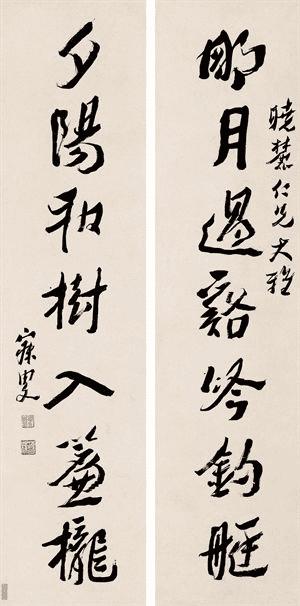 明月過谿吟釣艇
曉仁兄大雅
夕陽和樹入簾櫳
寐叟